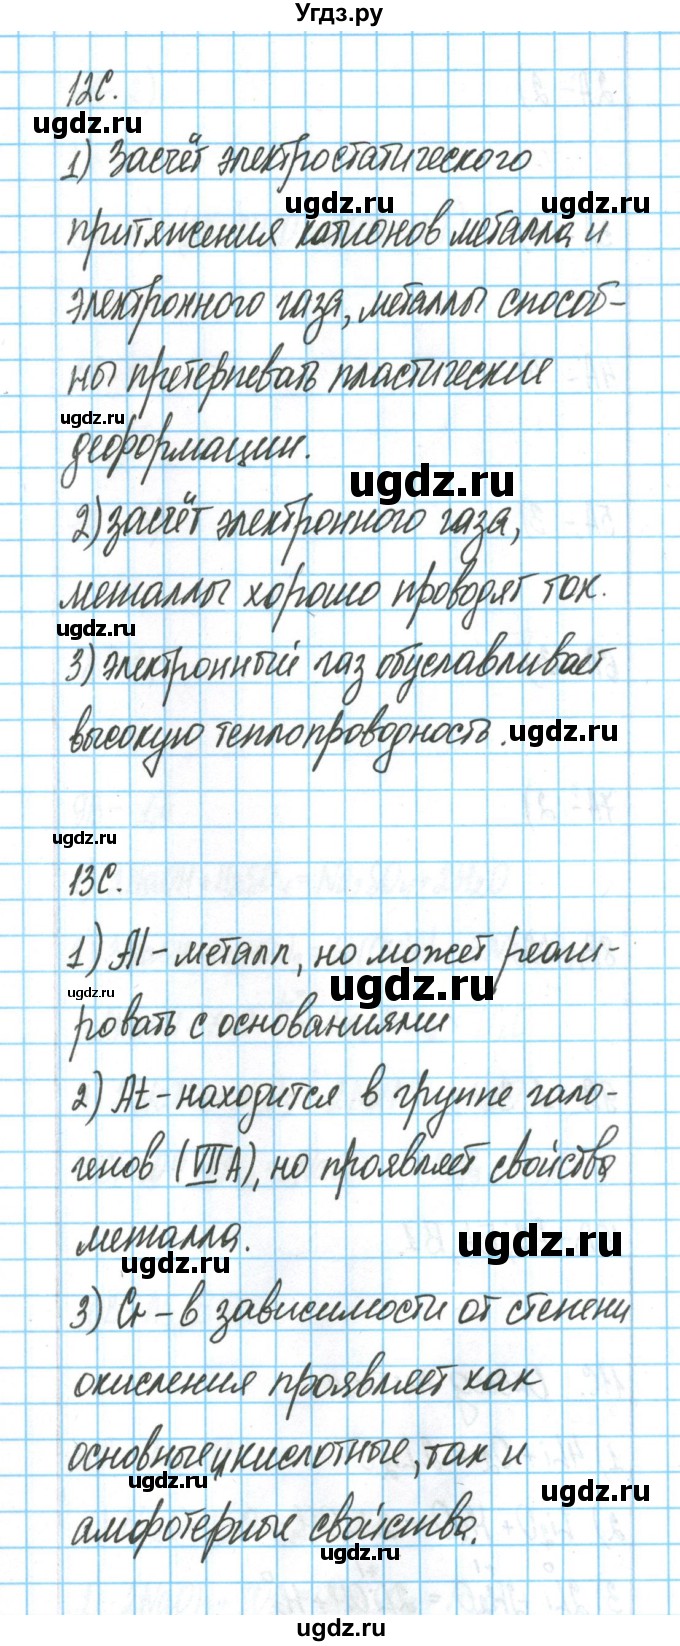 Угдз.ру
12С.
ugdz.ru
1) Засчёт электростатического
ugdz.ru ugdz.ru
притяжения катионов металла и
электронного газа, металлы способ-
ны претерпевать пластические
ugdz.ru
деформации.
ugdz.ru
2) засчёт электронного газа,
металлы хорошо проводят ток.
ugdz.ru
3) электронный газ обуславливает
высокую теплопроводность.
ugdz.ru
ugdz.ru
13С.
1) Al - металл, но может реаги-
ugdz.ru ugdz.ru
ровать с основаниями
2) At - находится в группе гало-
генов (VIIA), но проявляет свойства
металла.
ugdz.ru ugdz.ru
3) Cr - в зависимости от степени
окисления проявляет как
основные и кислотные, так и
ugdz.ru ugdz.ru
амфотерные свойства.
ugdz.ru
ugdz.ru